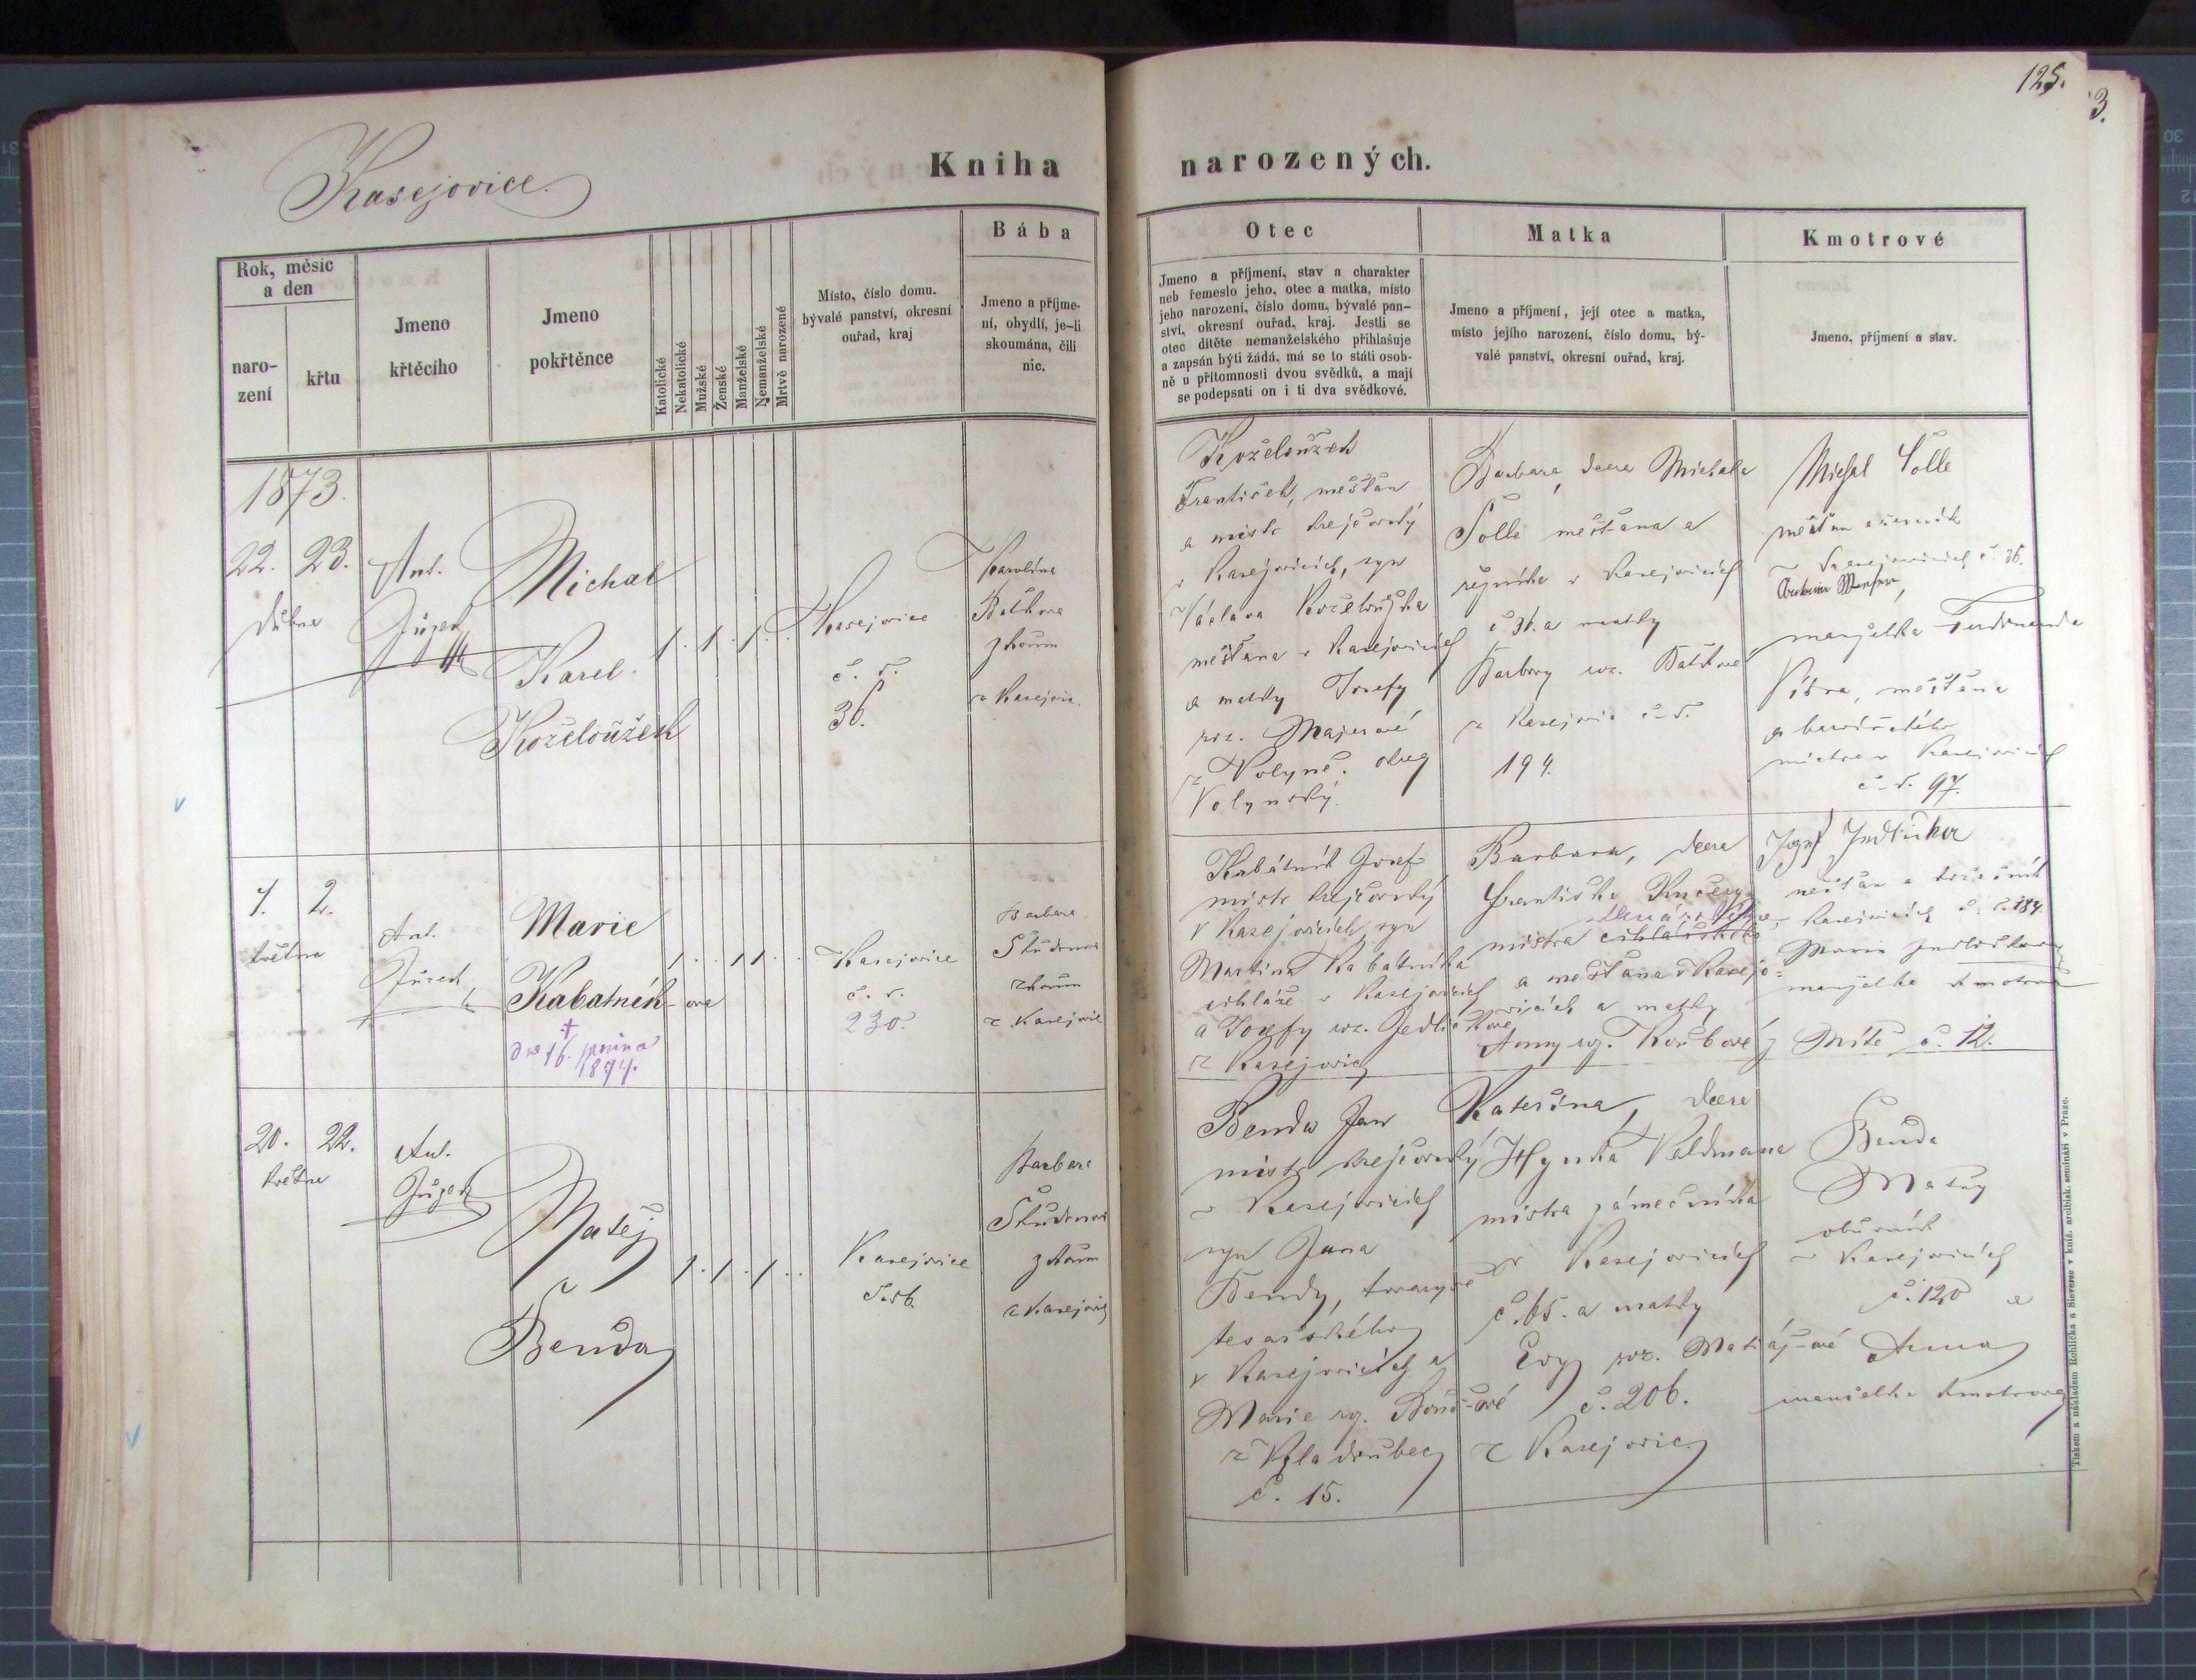 125.
3.
Kasejovice.
Kniha
narozených.
Rok, měsíc
a den
naro-
zení
křtu
Jmeno
křtěcího
Jmeno
pokřtěnce
Katolické
Nekatolické
Mužské
Ženské
Manželské
Nemanželské
Mrtvě narozené
Místo, číslo domu.
bývalé panství, okresní
ouřad, kraj
Bába
Jmeno a příjme-
ní, obydlí, je-li
skoumána, čili
nic.
Otec
Jmeno a příjmení, stav a charakter
neb řemeslo jeho, otec a matka, místo
jeho narození, číslo domu, bývalé pan-
ství, okresní ouřad, kraj. Jestli se
otec dítěte nemanželského přihlašuje
a zapsán býti žádá, má se to státi osob-
ně u přítomnosti dvou svědků, a mají
se podepsati on i ti dva svědkové.
Matka
Jmeno a příjmení, její otec a matka,
místo jejího narození, číslo domu, bý-
valé panství, okresní ouřad, kraj.
Kmotrové
Jmeno, příjmení a stav.
1873.
22. 23.
dubna
Ant.
Michal
Karel
Koželoužek
1 . 1 . 1 . .
Kasejovice
č. d.
36.
Karolina
zkoum
z Kasejovic
Koželoužek
František, mešťan
a mistr krejčovský
v Kasejovicích, syn
Václava Koželoužka
mešťana v Kasejovicích
a matky Josefy
roz. Majerové
z Volyně. okres
Volynský.
Barbara, dcera Michala
Šolle mešťana a
řezníka v Kasejovicích
č 36. a matky
Barbory roz.
z Kasejovic č. d.
194.
Michal Šolle
mešťan a řezník
v Kasejovicích č 36.
manželka Ferdinanda
mešťana
a
mistra v Kasejovicích
č. d. 97.
1. 2.
května
Ant.
Marie
Kabatník-ova
†
dne 16. října
1874.
1 . . 1 1 . .
Kasejovice
č. d.
230.
Barbara
zkoum
z Kasejovic
Kabátník Josef
mistr krejčovský
v Kasejovicích, syn
Martina Kabatníka
cihláře v Kasejovicích
a Josefy roz. Jedličkové
z Kasejovic
Barbara, dcera
Františka Kučery
mistra
a mešťana v Kasejo-
vicích a matky
Anny roz.
Josef Jedlička
mešťan a
Kasejovicích č. d. 184.
Marie Jedličkova
manželka kmotrova
č. 12.
20. 22.
května
Ant.
Matěj
Benda
1 . 1 . 1 . .
Kasejovice
Barbara
zkoum
z Kasejovic
Benda Jan
mistr krejčovský
v Kasejovicích
syn Jana
Bendy, tovaryše
tesařského
v Kasejovicích a
Marie roz.
z Vladrubec
č. 15.
Kateřina, dcera
Hynka Veldmana
mistra zámečníka
v Kasejovicích
č. 65. a matky
Evy roz. Matiáš-ové
č. 206.
z Kasejovic
Benda
Matěj
obuvník
v Kasejovicích
č. 120 a
Anna
manželka kmotrova
Tiskem a nákladem Rohlíčka a Sieverse v kníž. arcibisk. semináři v Praze.